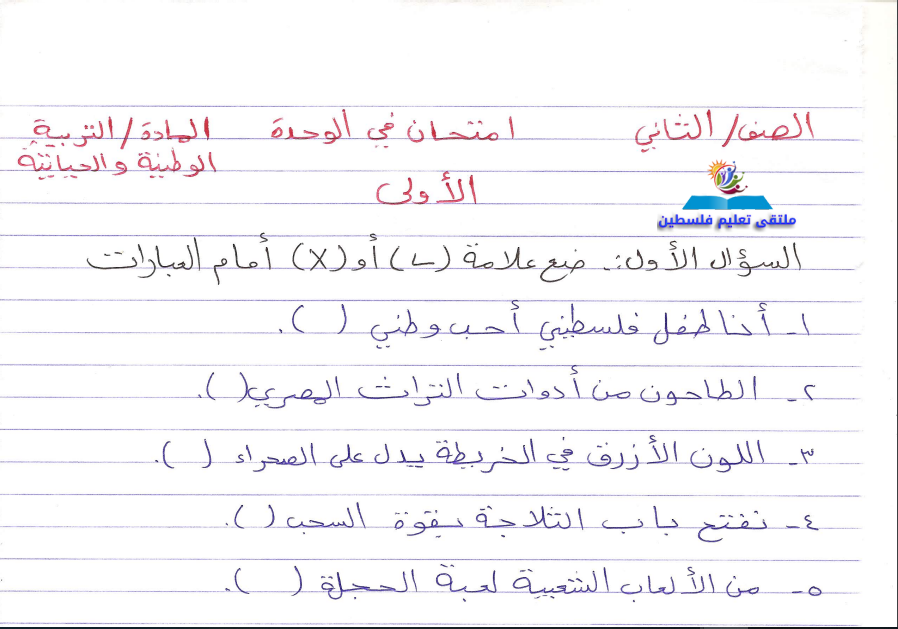 الصف/ الثاني امتحان في الوحدة المادة/ التربية
الوطنية والحياتية
الأولى
ملتقى تعليم فلسطين
السؤال الأول:. ضع علامة (✓) أو (X) أمام العبارات
١- أنا طفل فلسطيني أحب وطني ( ).
٢- الطاحون من أدوات التراث المصري( ).
٣- اللون الأزرق في الخريطة يدل على الصحراء ( ).
٤- نفتح باب الثلاجة بقوة السحب ( ).
٥- من الألعاب الشعبية لعبة الحجلة ( ).